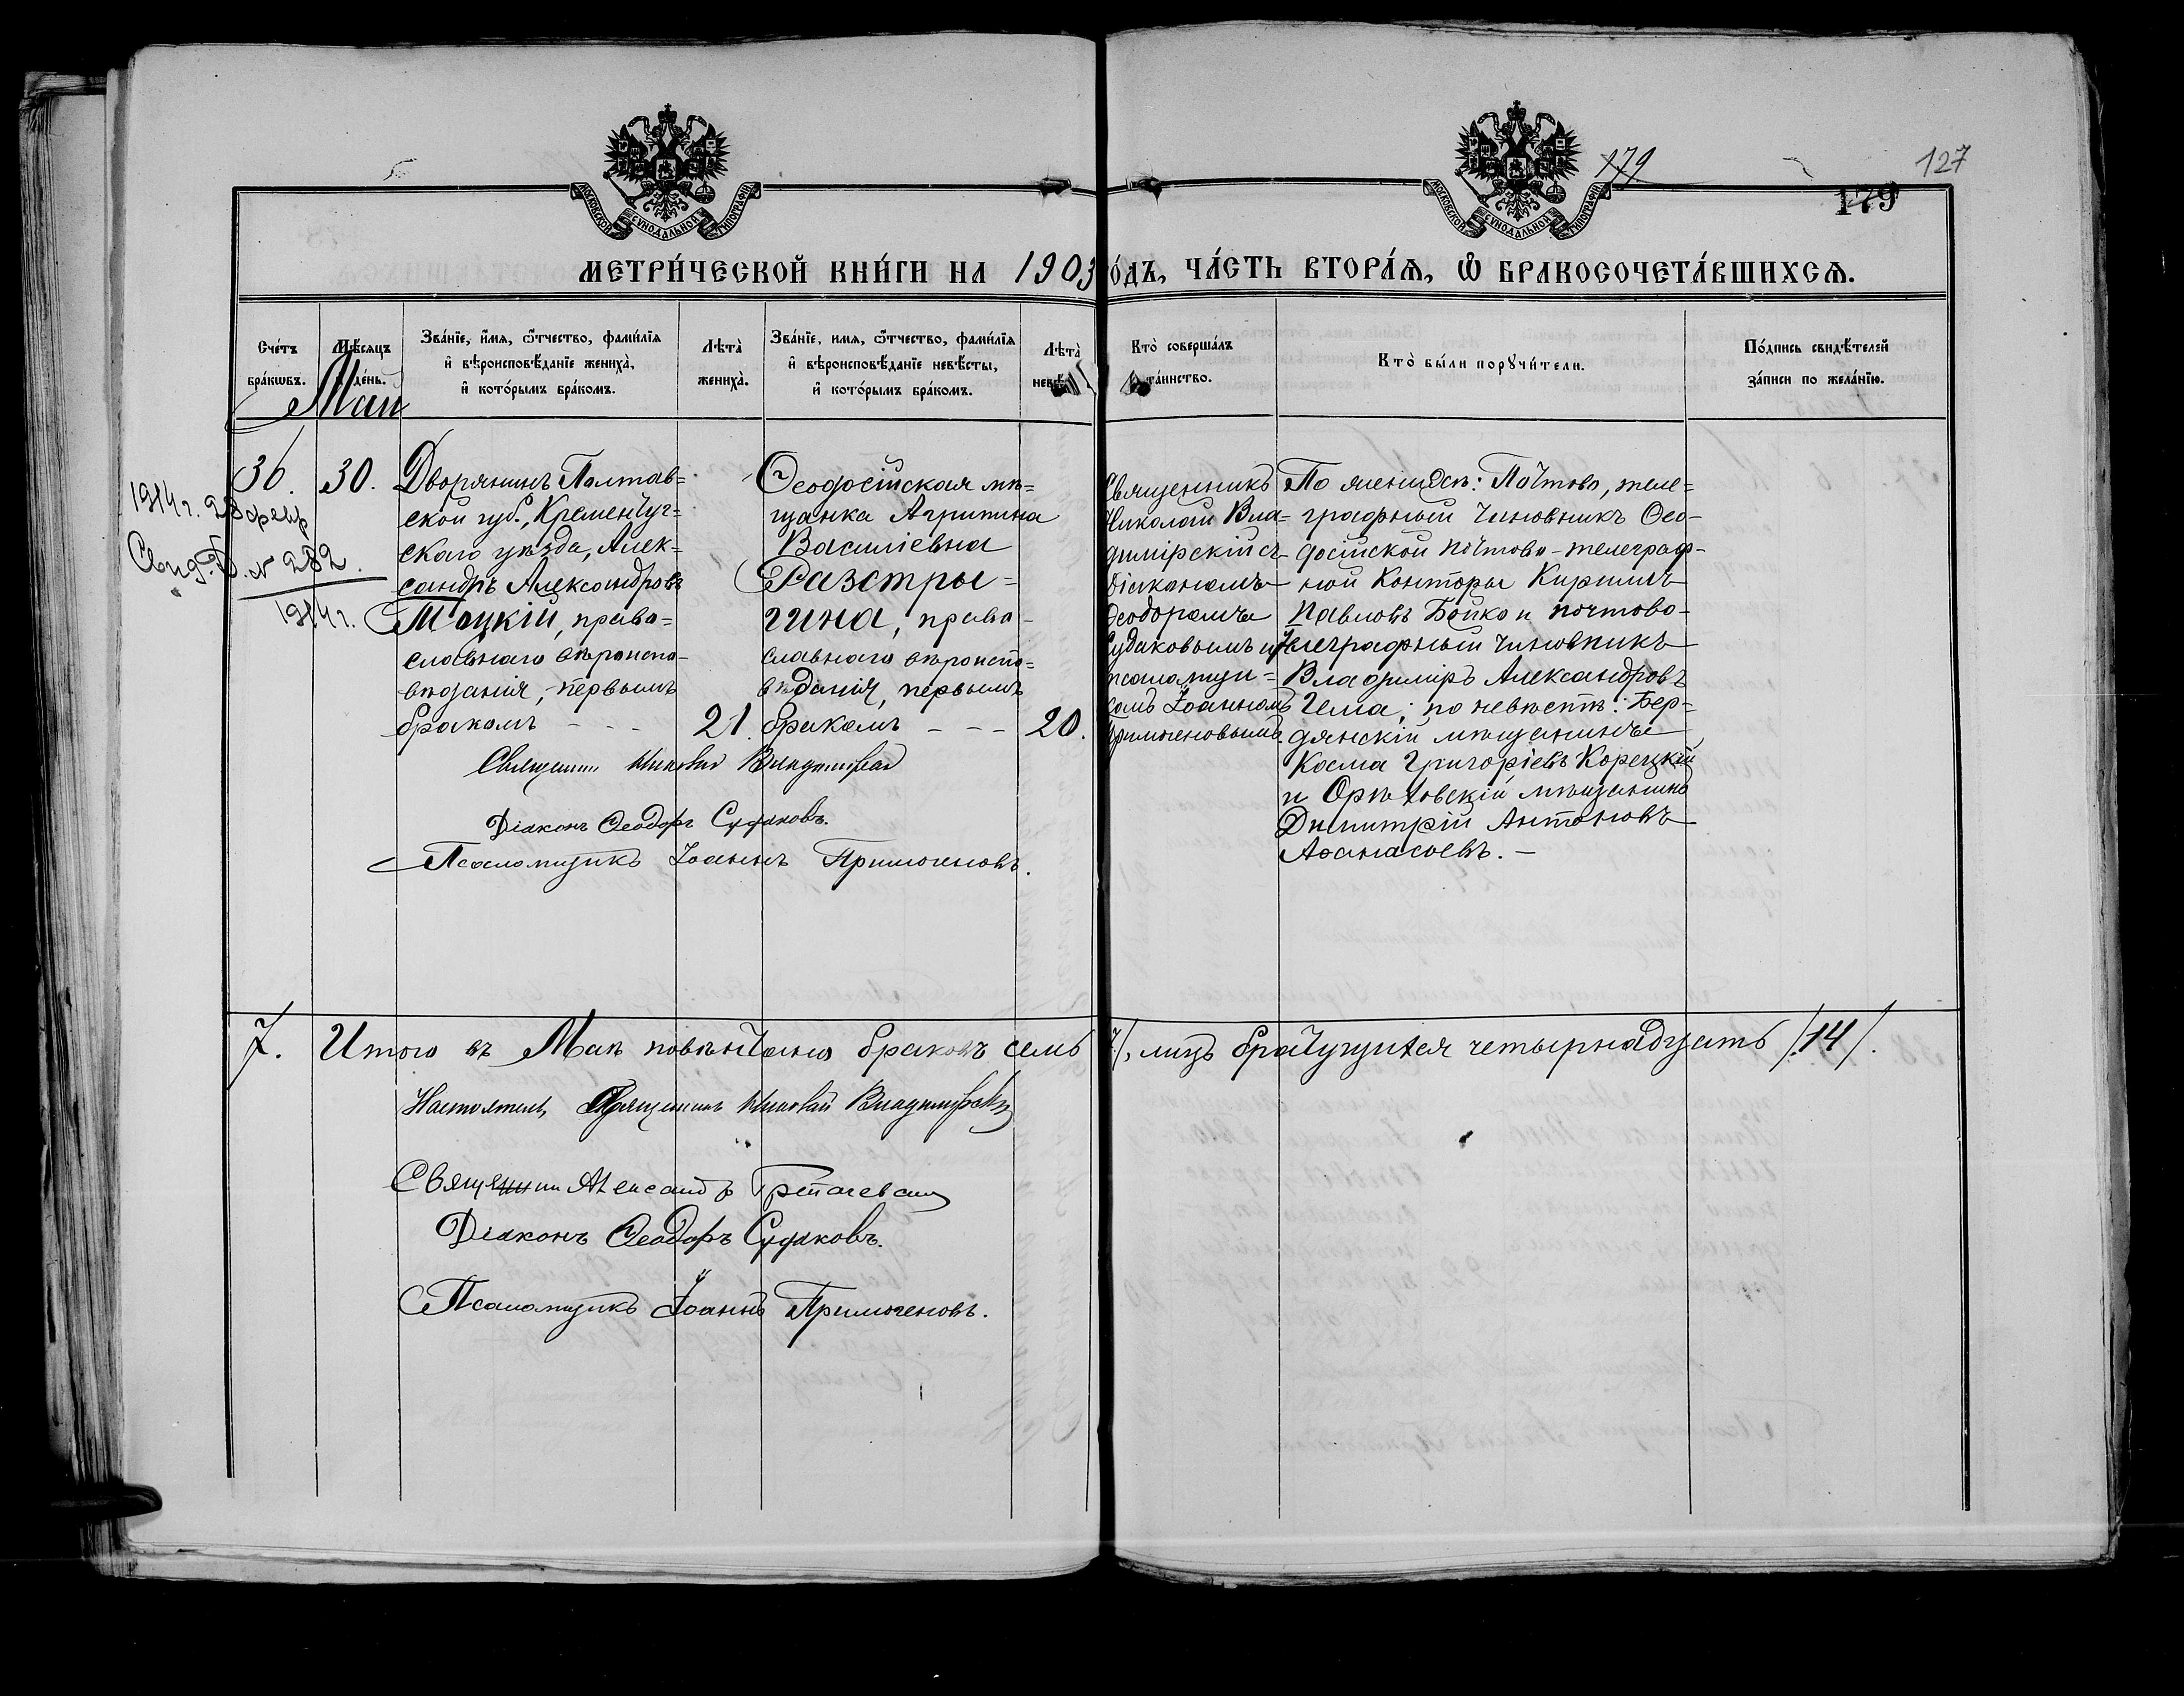 179
127
179
МОСКОВСКОЙ СѴНОДАЛЬНОЙ ТИПОГРАФІИ
МОСКОВСКОЙ СѴНОДАЛЬНОЙ ТИПОГРАФІИ
МЕТРИ́ЧЕСКОЙ КНИ́ГИ НА 1903 ГО́ДЪ, ЧА́СТЬ ВТОРА́Ѧ, Ѡ҆ БРАКОСОЧЕТА́ВШИХСѦ.
Сче́тъ бра́кѡвъ.
Мѣ́сяцъ и де́нь.
Зва́нїе, и҆́мѧ, ѻ҆́тчество, фами́лїѧ
и҆ вѣроисповѣ́данїе жениха̀,
и҆ кото́рымъ бра́комъ.
Лѣта̀ жениха̀.
Зва́нїе, имѧ, ѻ҆́тчество, фами́лїѧ
и҆ вѣроисповѣ́данїе невѣ́сты,
и҆ кото́рымъ бра́комъ.
Лѣта̀
Кто̀ соверша́лъ та́инство.
Кто̀ бы́ли порꙋчи́тели.
По́дпись свидѣ́телей за́писи по жела́нїю.
Май
36.
30.
1914 г. 28 февр
Свид. № 282.
1914 г.
Дворянинъ Полтав=
ской губ., Кременчуг=
скаго уѣзда, Алек=
сандръ Александровъ
Мацкій, право=
славнаго вѣроиспо-
вѣданія, первымъ
бракомъ - - - 21.
Ѳеодосійская мѣ=
щанка Агрипина
Василіевна
Разстры=
гина, право-
славнаго вѣроиспо=
вѣданія, первымъ
бракомъ - - - 20.
Священникъ
Николай Вла=
димірскій съ
діакономъ
Ѳеодоромъ
Судаковымъ и
псаломщи=
комъ Іоанномъ
Примогеновымъ.
По женихѣ: Почтово, теле=
графный чиновникъ Ѳео-
досійской почтово-телеграф-
ной конторы Кириллъ
Павловъ Бойко и почтово-
телеграфный чиновникъ
Владиміръ Александровъ
Чема; по невѣстѣ: Бер=
дянскій мѣщанинъ
Косма Григоріевъ Корецкій
и Орѣховскій мѣщанинъ
Димитрій Антоновъ
Аѳанасьевъ.-
Священник Николай Владимірскій
Діаконъ Ѳеодоръ Судаковъ.
Псаломщикъ Іоаннъ Примогеновъ.
7. Итого въ Маѣ повѣнчано браковъ семь /7/, лицъ брачущихся четырнадцать /14/.
Настоятель, Священникъ Николай Владимірскій
Священник Александръ
Діаконъ Ѳеодоръ Судаковъ.
Псаломщикъ Іоаннъ Примогеновъ.